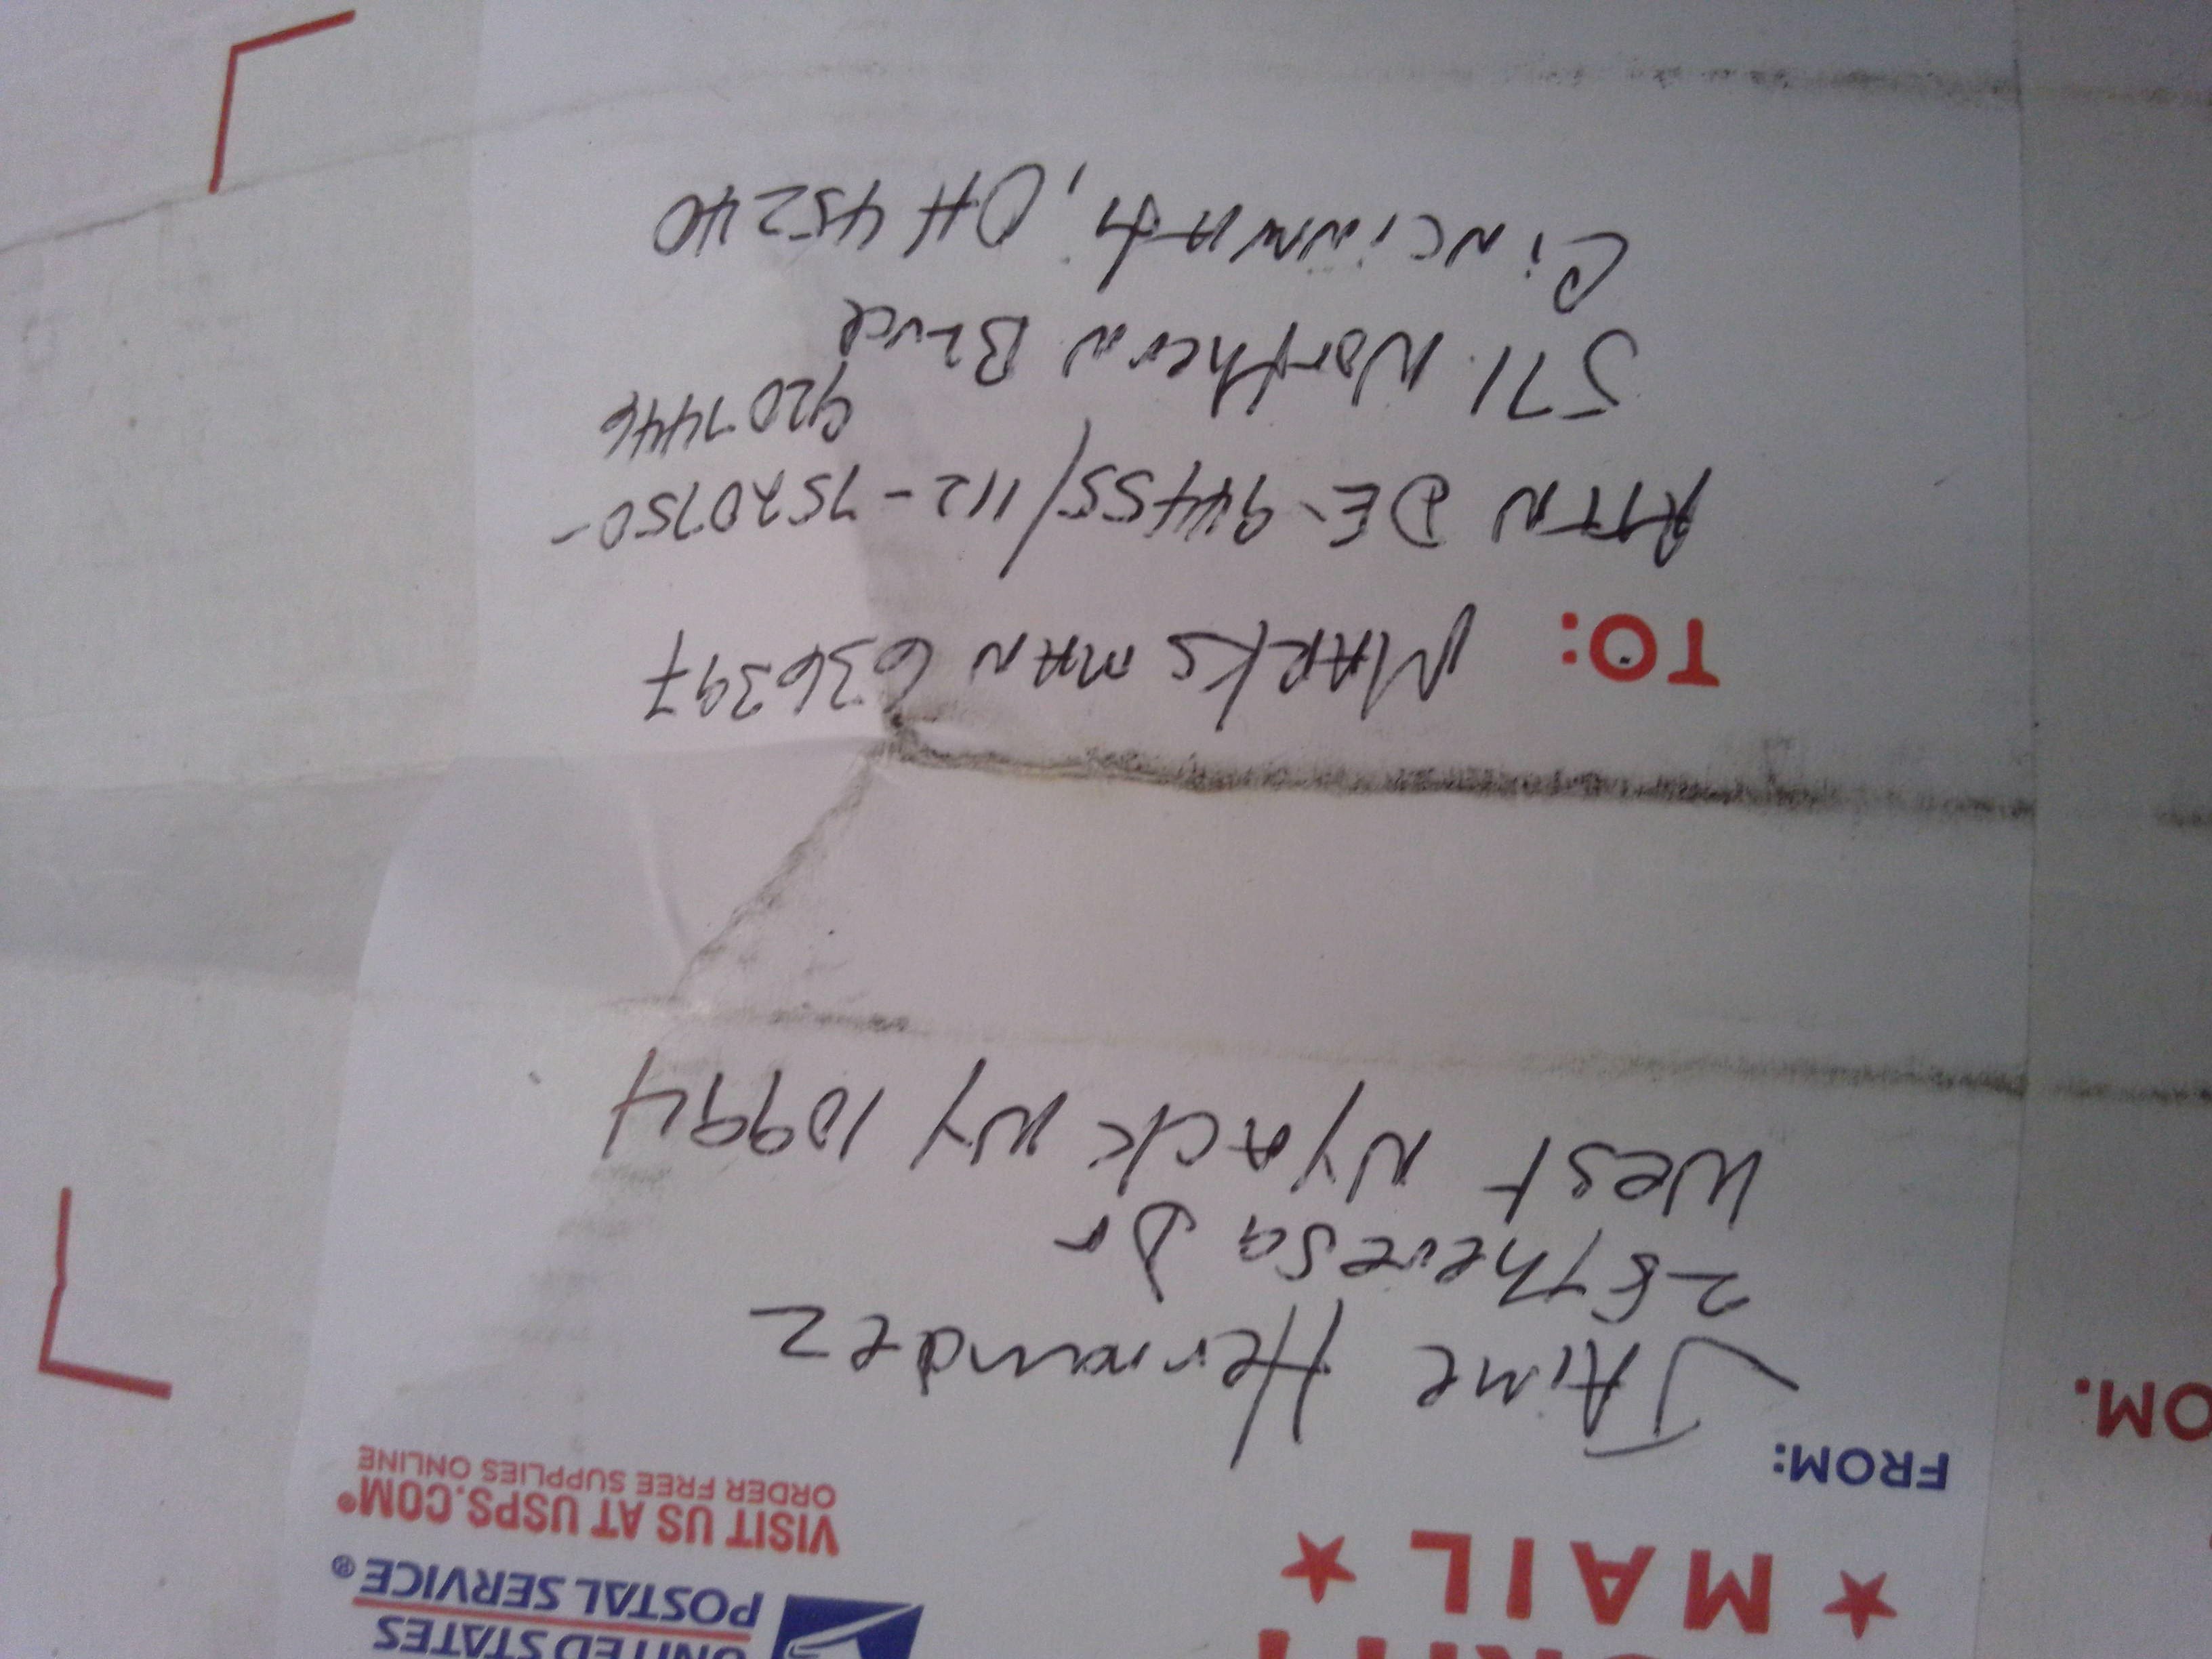 UNITED STATES
POSTAL SERVICE®
VISIT US AT USPS.COM®
ORDER FREE SUPPLIES ONLINE
★ MAIL ★
FROM:
JAime Hernandez
28 Theresa Dr
West NYACK NY 10994
TO: MARKSMAN 636397
ATTN DE-94455/112-7520750-
9207446
571 Northern BLvd
CiNCiNNAti, OH 45240
OM.